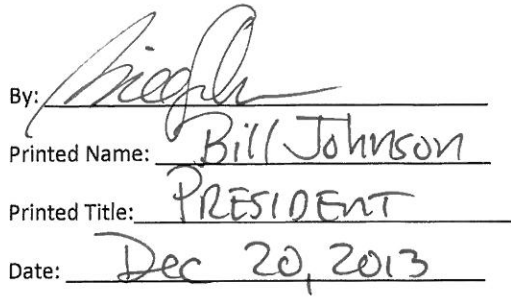 By:
Printed Name: Bill Johnson
Printed Title: PRESIDENT
Date: Dec 20, 2013